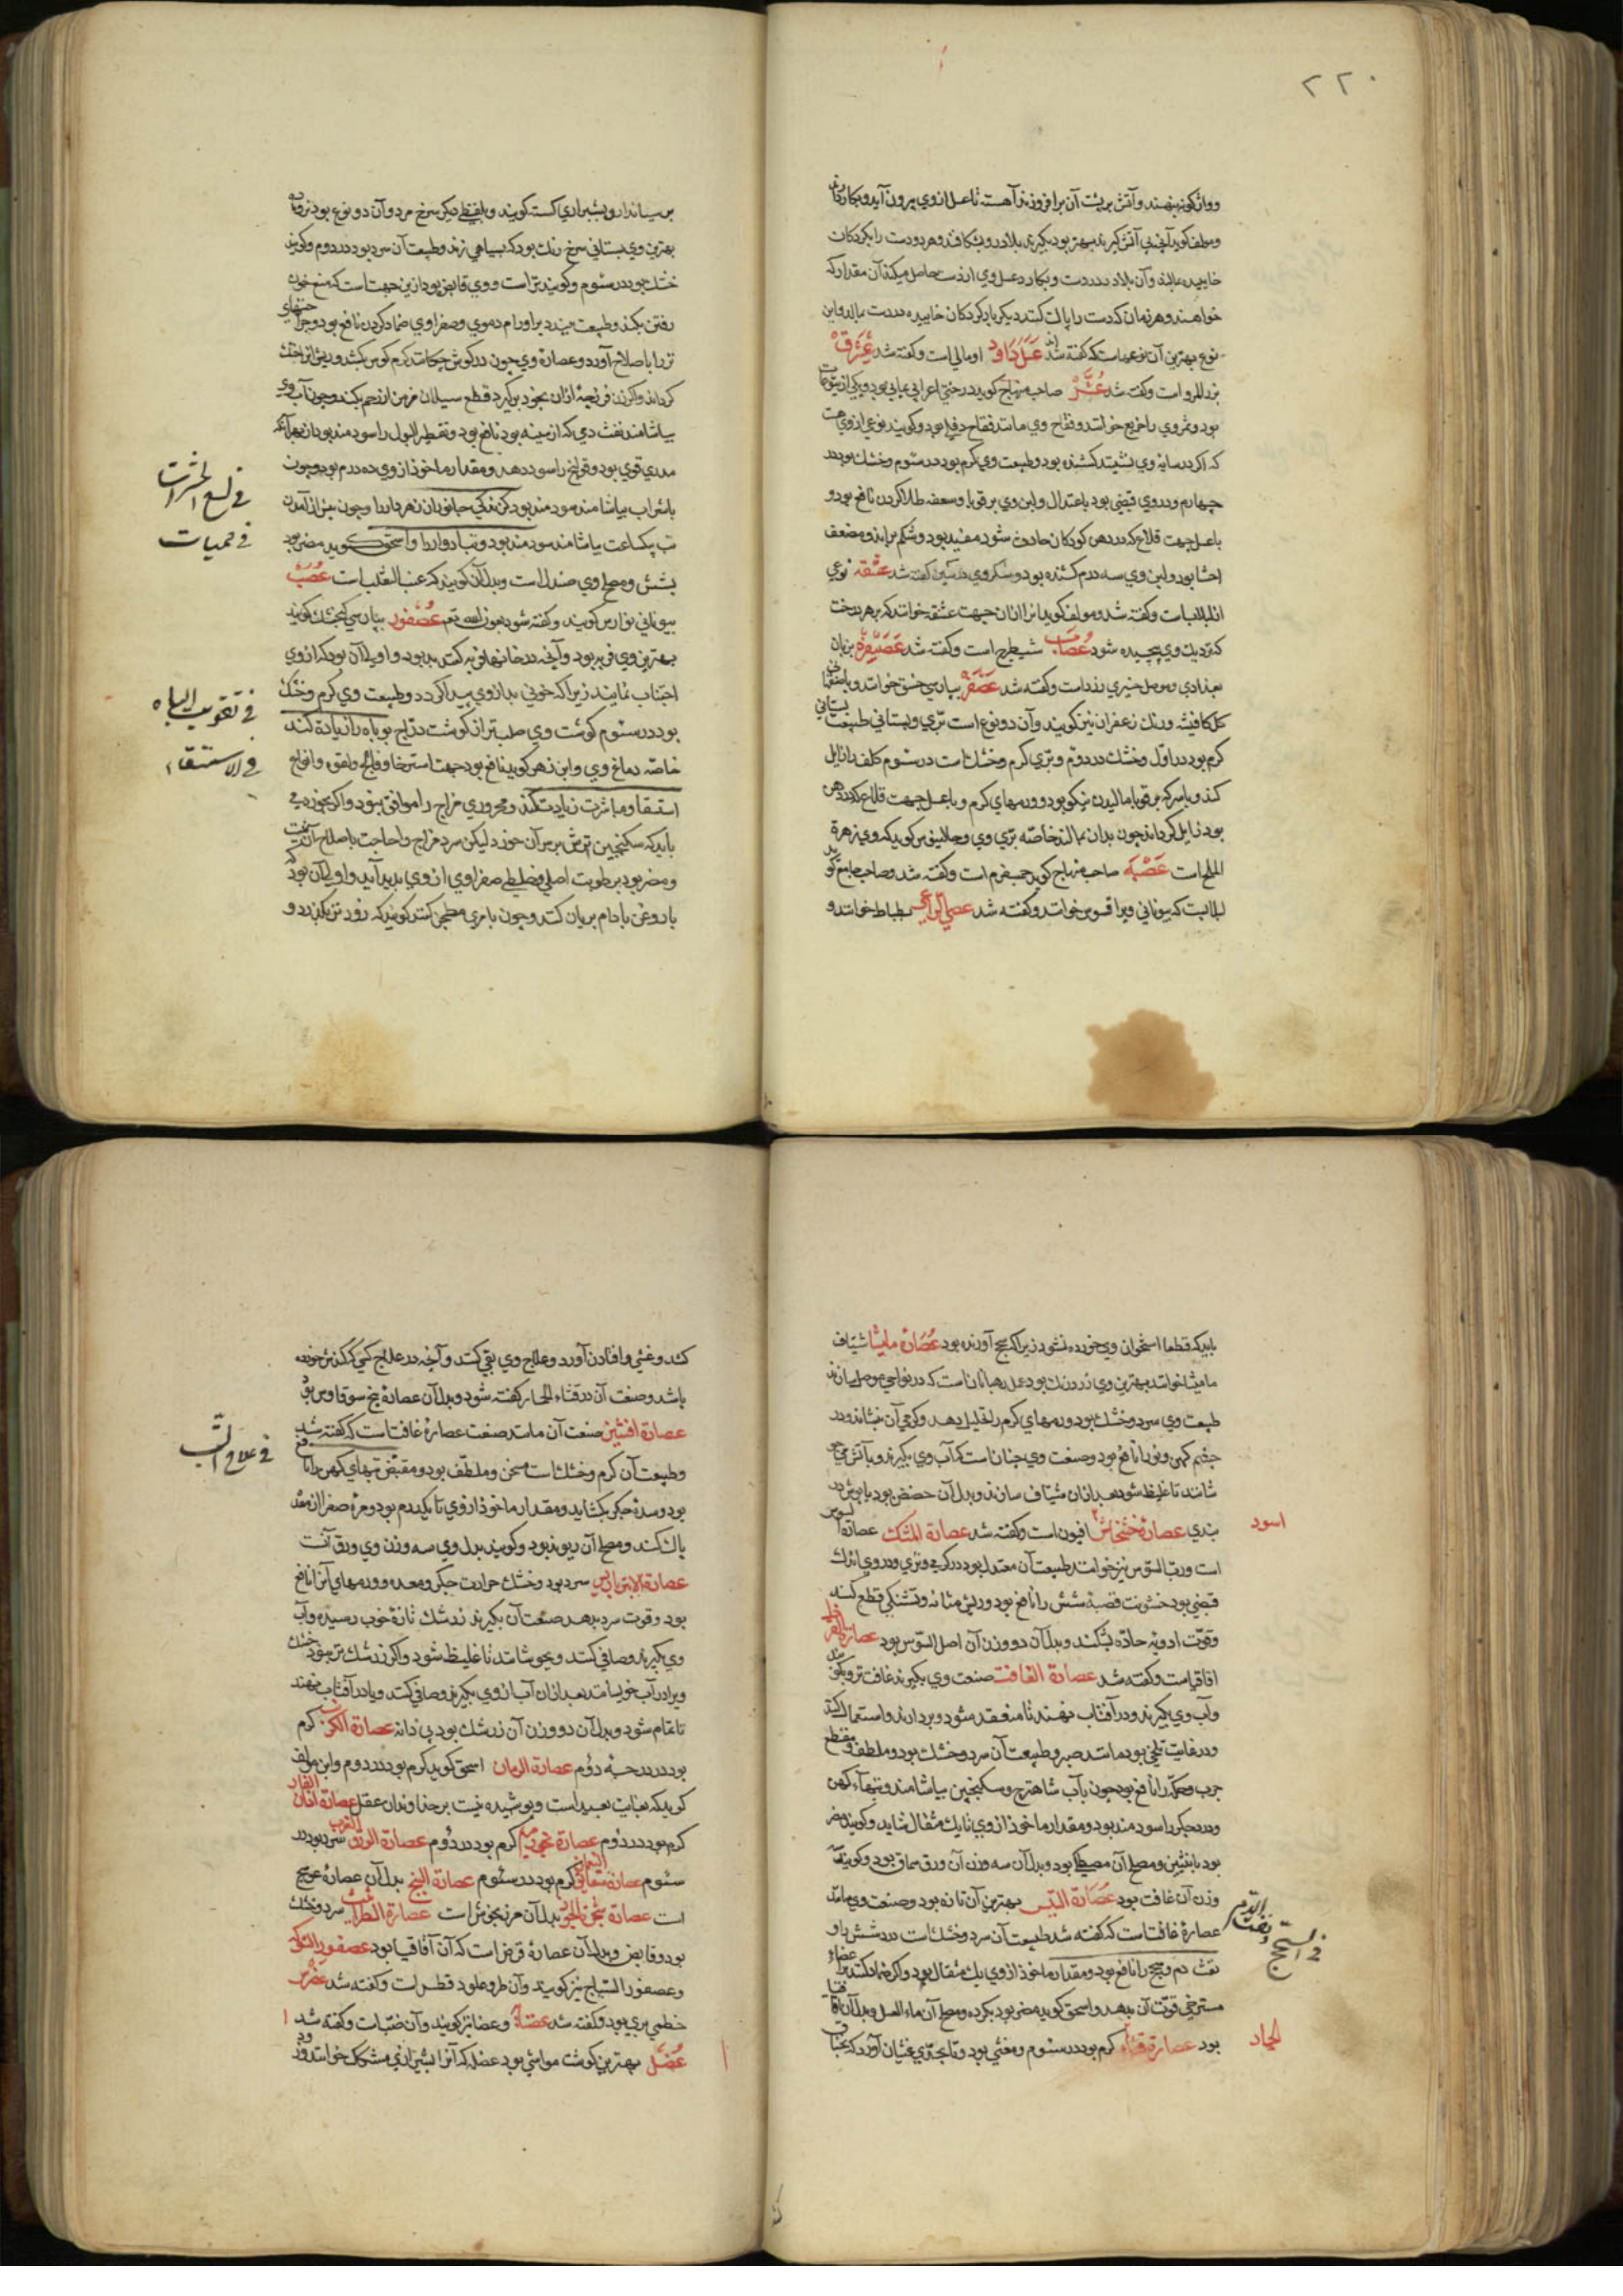 ۲۲۰
و واژگونه بنهند و آتش بر پشت آن برافروزند آهسته تا عسل از وی بیرون آید و بکار دارند
و مولف کوید آنچ بی آتش کیرند بهتر بود بکیرند بلادر و بشکافند و هر دو دست را بکردکان
خاییده بمالند و آن بلادر در دست و بکارد عسل وی از دست حاصل میکند آن مقدار که
خواهند و هر زمان که دست را پاک کنند دیکر باره کردکان خاییده در دست بمالد و این
نوع بهترین آن نوعهاست که کفته شد عَسَل داود اومالی است و کفته شد عِشرَق
بزر المرو است و کفته شد عُشَر صاحب منهاج کوید درختی اعرابی یمانی بود و یکی از یتوعات
بود و ثمر وی را خریع خوانند و فقاح وی مانند فقاح دفلی بود و کویند نوعی از وی هست
که اکر در سایه وی نشینند کشنده بود و طبیعت وی کرم بود در سئوم و خشک بود در
چهارم و در وی قبضی بود باعتدال و لبن وی بر قوبا و سعفه طلا کردن نافع بود و
باعسل جهت قلاع که در دهن کودکان حادث شود مفید بود و شکم براند و مضعف
احشا بود و لبن وی سه درم کشنده بود و سکر وی در سین کفته شد عشقه نوعی
از لبلابست و کفته شد و مولف کوید انرا از ان جهت عشقه خوانند که بر هر درخت
که نزدیک وی پیچیده شود عُصاب شیطرج است و کفته شد عُصَیفِره بزبان
بغدادی و موصل خیری زرد است و کفته شد عُصفُر بپارسی خسق خوانند و باصفهان
کل کافیشه و رنک زعفران نیز کویند و آن دو نوع است بری و بستانی طبیعت بستانی
کرم بود در اول و خشک در دوم و بری کرم و خشک است در سئوم کلف را زایل
کند و باسرکه بر قوبا مالیدن نیکو بود و ورمهای کرم و باعسل جهت قلاع که در دهن
بود زایل کرداند چون بدان بمالند خاصه بری وی و جالینوس کوید که وی زهرة
الملح است عَصبه صاحب منهاج کوید حمسفرم است و کفته شد و صاحب جامع کوید
لبلابست که بیونانی ویرا قسوس خوانند و کفته شد عصی الراعی بطباط خوانند و
برسیاندارو بشیرازی کسته کویند و بلفظ دیکر سرخ مرد و آن دو نوع بود نر و ماده
بهترین وی بستانی سرخ رنک بود که بسیاهی زند و طبیعت آن سرد بود در دوم و کویند
خشک بود در سئوم و کویند تر است و وی قابض بود ازین جهت است که منع خون
رفتن بکند و طبیعت ببندد بر اورام دموی و صفراوی ضماد کردن نافع بود و جراحتهای
تر را باصلاح آورد و عصارة وی چون در کوش چکانند کرم کوش بکشد و ریش انرا خشک
کرداند و اکر زن فرزجه ازان بخود برکیرد قطع سیلان مزمن از رحم بکند و چون آب وی
بیاشامند نفث دمی که از سینه بود نافع بود و تقطیر البول را سود مند بود از بهر آنکه
مدری قوی بود و قولنج را سود دهد و مقدار ماخوذ از وی ده درم بود و چون
باشراب بیاشامند سود مند بود کزندکی جانوران زهردار را و چون پیش از آمدن
تب یکساعت بیاشامند سود مند بود و تبا دوار را و اسحق کوید مضر بود
بشش و مصلح وی صندل است و بدل آن کویند که عنب الثعلب است عُصَب
بیونانی نوارس کویند و کفته شود بعون الله تعم عُصفور بپارسی کنجشک کویند
بهترین وی فربه بود و آنچه در خانها فربه کنند بد بود و اولی آن بود که از وی
اجتناب نمایند زیرا که خونی بد از وی پیدا کردد و طبیعت وی کرم و خشک
بود در سئوم کوشت وی صلبتر از کوشت دراج بود باه را زیادة کند
خاصه دماغ وی و ابن زهر کوید نافع بود جهت استرخا و فالج و لقوه و انواع
استسقا و مباشرت زیادت کند و محروری مزاج را موافق نبود و اکر بخورند می
باید که سکنجبین ترش بر سر آن خورد لیکن سرد مزاج را حاجت باصلاح آن نیست
و مضر بود برطوبت اصلی و خلطی صفراوی از وی پدید آید و اولی آن بود که
باروغن بادام بریان کنند و چون با مری مطجن کنند کویند که زود تر بکذرد و
فی لسع الحشرات
فی حمیات
فی تقویت الباه
فی الاستسقاء
باید که قطعا استخوان وی خورده نشود زیرا که سحج آورنده بود عُصارة مامیثا شیاف
مامیثا خوانند بهترین وی زرد رنک بود عمل رهبانان است که در نواحی موصل سازند
طبیعت وی سرد و خشک بود ورمهای کرم را تحلیل دهد و کرمی آن بنشاند و درد
چشم کهن و نور را نافع بود و صنعت وی چنان است که آب وی بکیرند و باتش می جو
شانند تا غلیظ شود بعد ازان شیاف سازند و بدل آن حضض بود یا بوش در
بندی عصارة خشخاش اسود افیون است و کفته شد عصارة المشک عصارة السوس
است و رب السوس نیز خوانند طبیعت آن معتدل بود در کرمی و تری و در وی اندک
قبضی بود خشونت قصبة شش را نافع بود و ریش مثانه و تشنکی قطع کند
و قوّت ادویه حاده بشکند و بدل آن دو وزن آن اصل السوس بود عصارة القرظ
اقاقیاست و کفته شد عصارة الغافت صنعت وی بکیرند غافت تر و بکوبند
و آب وی بکیرند و در آفتاب نهند تا منعقد شود و بردارند و استعمال کنند
و در غایت تلخی بود مانند صبر و طبیعت آن سرد و خشک بود و ملطف و مقطع
جرب و حکه را نافع بود چون بآب شاهترج و سکنجبین بیاشامند و تبهاء کهن
و درد جکر را سود مند بود و مقدار ماخوذ از وی تا یک مثقال شاید و کویند مضر
بود بانثیین و مصلح آن مصطکی بود و بدل آن سه وزن آن ورق سماق بود و کویند
وزن آن غافت بود عُصَارَة التیس بهترین آن تازه بود و صنعت وی مانند
عصارة غافت است که کفته شد طبیعت آن سرد و خشک است در شش را و
نفث دم و سحج را نافع بود و مقدار ماخوذ از وی یک مثقال بود و اکر ضماد کنند بر اعضاء
مسترخی قوت آن بدهد و اسحق کوید مضر بود بکرده و مصلح آن ماء العسل و بدل آن اقاقیا
بود عصارة قثاء الحمار کرم بود در سئوم و مغثی بود و تا بحدّی غثیان آورد که بخناق
اسود
فی السحج و نفث الدم
الحمار
کشد و غشی و افتادن آورد و علاج وی بقی کنند و آنچه در علاج کسی که کندش خورده
باشد و صنعت آن در قثاء الحمار کفته شود و بدل آن عصارة بیخ سوقاوس بود
عصارة افسنتین صنعت آن مانند صنعت عصارة غافت است که کفته شد
و طبیعت آن کرم و خشک است مسخن و ملطّف بود و مقبض تبهای کهن را نافع
بود و سدة جکر بکشاید و مقدار ماخوذ از وی تا یکدرم بود و مرة صفرا از معده
پاک کند و مصلح آن ریوند بود و کویند بدل وی سه وزن وی ورق آنست
عصارة الامبرباریس سرد بود و خشک حرارت جکر و معده و ورمهای آنرا نافع
بود و قوت سرد بدهد صنعت آن بکیرند زرشک تازة خوب رسیده و آب
وی بکیرند و صافی کنند و بجوشانند تا غلیظ شود و اکر زرشک تر نبود خشک
ویرا در آب خویسانند بعد ازان آب از وی بکیرند و صافی کنند و یا در آفتاب نهند
تا تمام شود و بدل آن دو وزن آن زرشک بود بی دانه عصارة الکرنب کرم
بود در درجه دوُم عصارة الرمان اسحق کوید کرم بود در دوم و این مولف
کوید که بغایت بعید است و پوشیده نیست بر خداوندان عقل عصارة اذان الفار
کرم بود در دوم عصارة نجود مریم کرم بود در دُوم عصارة الورق الغرب سرد بود در
سئوم عصارة شقایق النعمان کرم بود در سئوم عصارة البنج بدل آن عصارة عوسج
است عصارة بدل آن مرزنجوش تر است عصارة الطراثیث سرد و خشک
بود و قابض و بدل آن عصارة قرض است که آن آقاقیا بود عصفور الشوک
و عصفور السیاج نیز کویند وآن طرو علودقطس است و کفته شد عضرس
خطمی بری بود و کفته شد عضاة و عضا نیز کویند وآن ضبّ است و کفته شد
عُضَل بهترین کوشت مواشی بود عضله که آنرا بشیرازی مشکک خوانند و زود
فی علاج التب